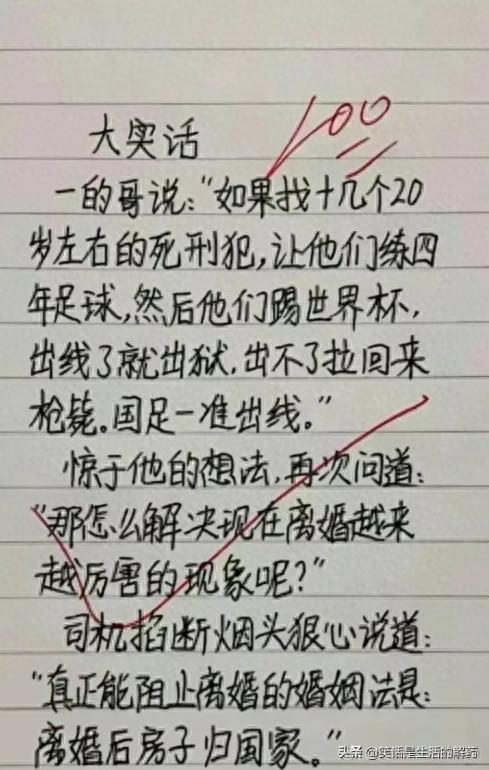 100
大实话
一的哥说:“如果找十几个20
岁左右的死刑犯,让他们练四
年足球,然后他们踢世界杯,
出线了就出狱,出不了拉回来
枪毙。国足一准出线。”
惊于他的想法,再次问道:
“那怎么解决现在离婚越来
越厉害的现象呢?”
司机掐断烟头狠心说道:
“真正能阻止离婚的婚姻法是:
离婚后房子归国家。”
头条 @笑话是生活的解药